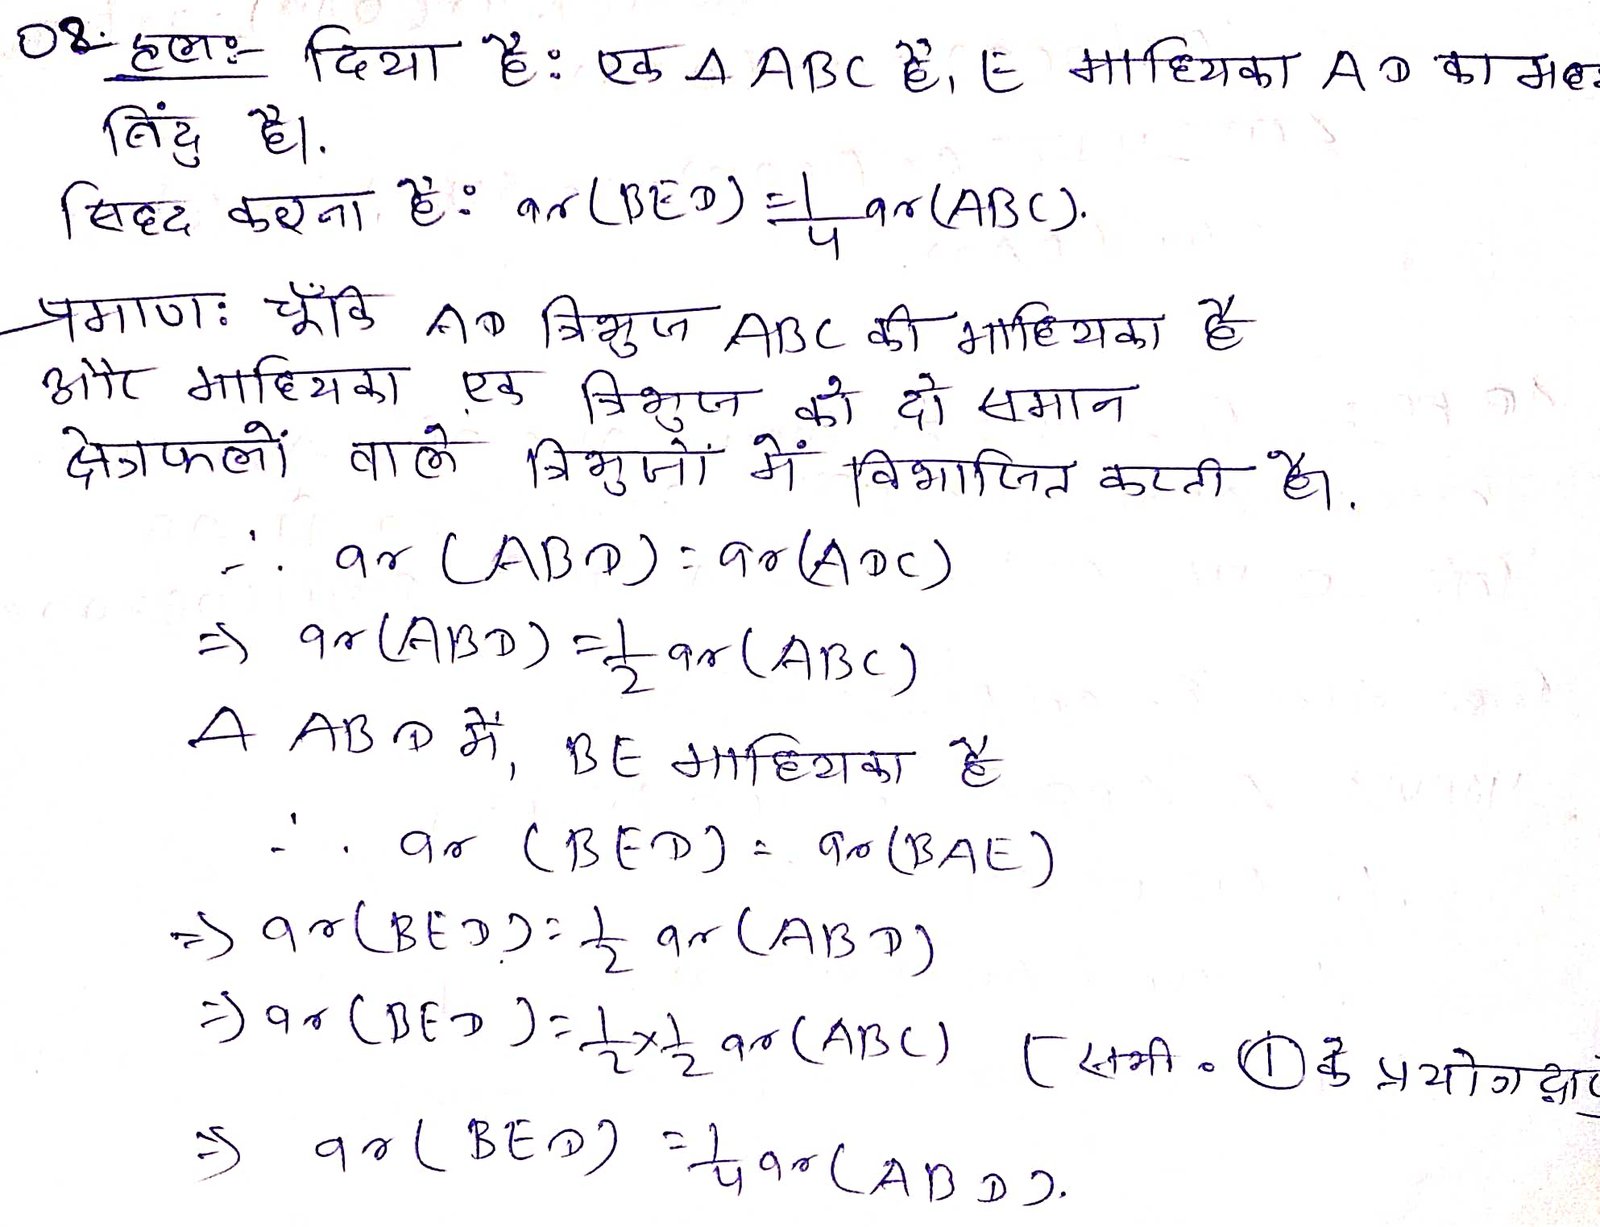 08. हलः- दिया हैः एक Δ ABC है, E माध्यिका AD का मध्य
बिंदु है।.
सिद्ध करना हैः ar(BED) = 1/4 ar(ABC).
प्रमाणः चूँकि AD त्रिभुज ABC की माध्यिका है
और माध्यिका एक त्रिभुज को दो समान
क्षेत्रफलों वाले त्रिभुजों में विभाजित करती है।.
∴ ar (ABD) = ar(ADC)
⇒ ar(ABD) = 1/2 ar(ABC)
Δ ABD में, BE माध्यिका है
∴ ar (BED) = ar(BAE)
⇒ ar(BED) = 1/2 ar(ABD)
⇒ ar(BED) = 1/2 × 1/2 ar(ABC) [समी. ① के प्रयोग द्वारा
⇒ ar(BED) = 1/4 ar(ABD).